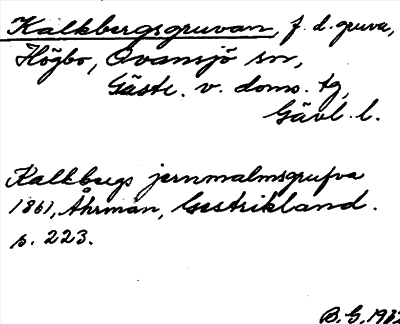 Kalkbergsgruvan, f. d. gruva,
Högbo, Ovansjö sn,
Gästr. v. doms. tg,
Gävl. l.
Kalkbergs jernmalmsgrufva
1861, Åhrman, Gestrikland.
s. 223.
B. G. 1932